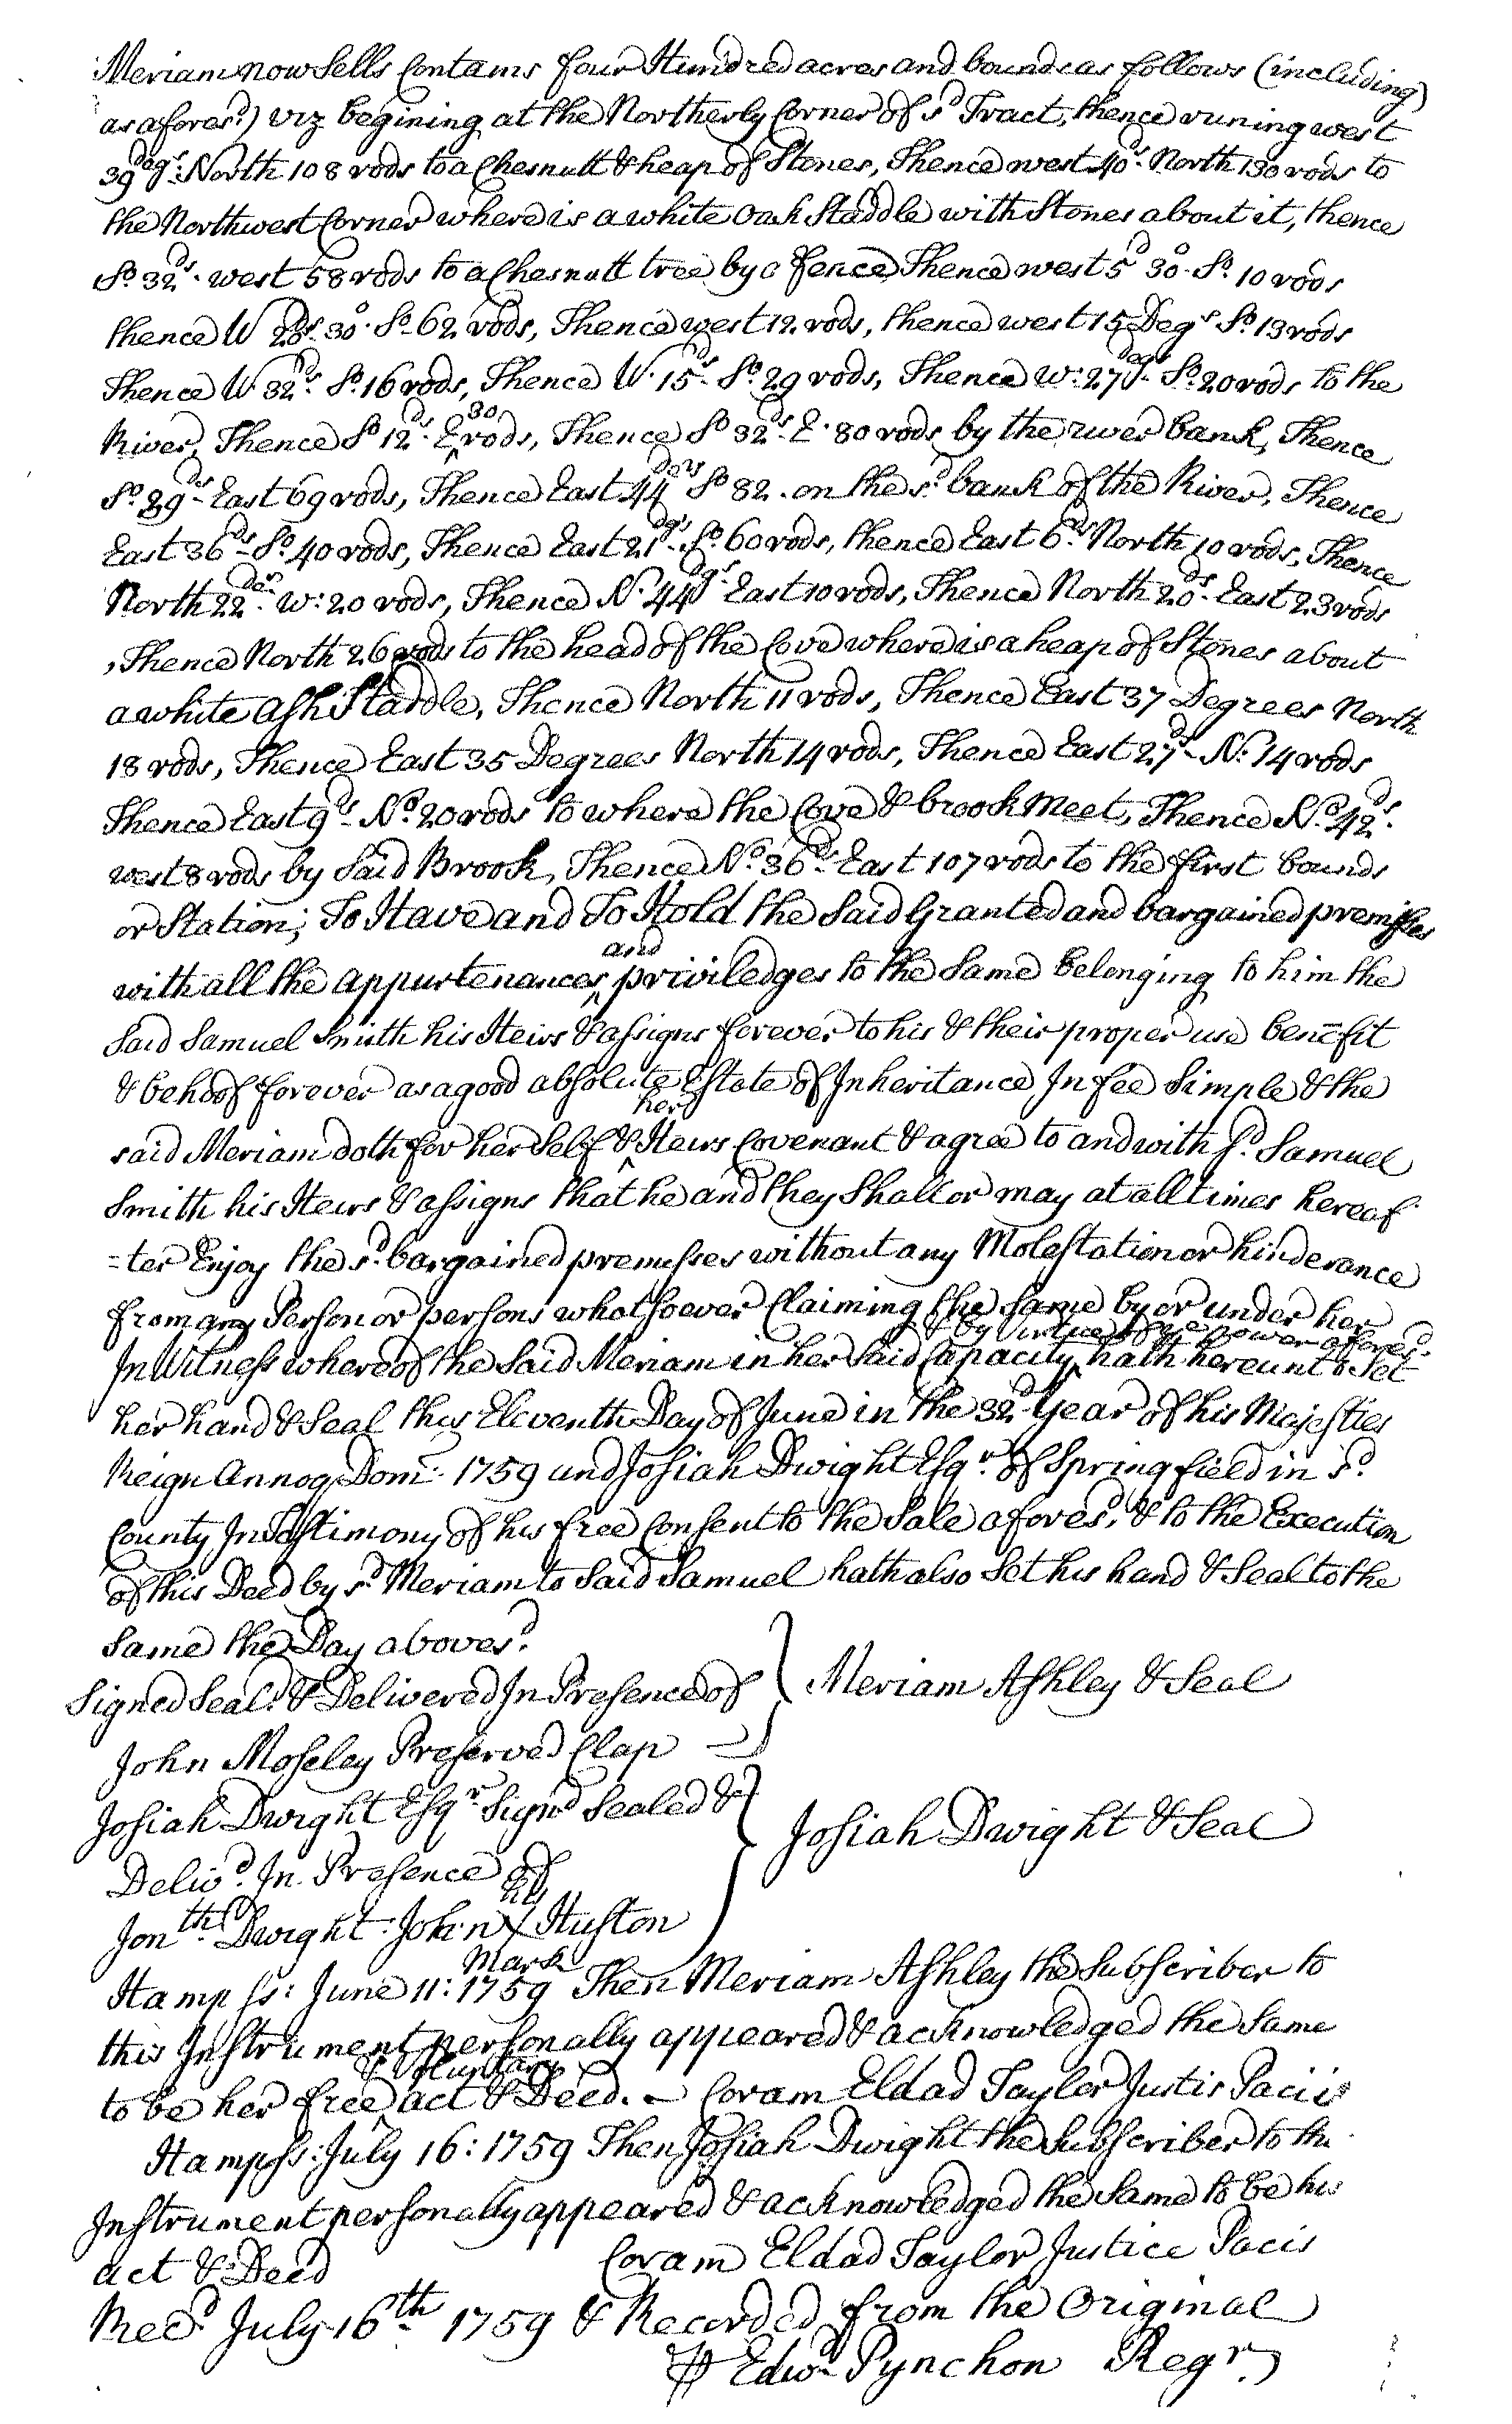 Meriam now Sells Contains four Hundred acres and bounds as follows (including
as afores:d) viz begining at the Northerly Corner of sd Tract, thence runing west
39 degs: North 108 rods to a Chesnutt & heap of Stones, Thence west 40ds. North 130 rods to
the Northwest Corner where is a white Oak Staddle with Stones about it, thence
So. 32ds. west 58 rods to a Chesnutt tree by a fence Thence west 5d 30. So. 10 rods
thence W 28ds. 30. So. 62 rods, Thence west 12 rods, thence west 15 Degs So. 13 rods
Thence W 32ds. So. 16 rods, Thence W. 15ds. So. 29 rods, Thence W: 27 degs. So. 20 rods to the
River, Thence So 12ds. E 30 rods, Thence So 32ds. E. 80 rods by the river bank, Thence
So. 29ds. East 69 rods, Thence East 44 degs So 82. on the sd. bank of the River, Thence
East 36ds. So. 40 rods, Thence East 21dgs. So. 60 rods, thence East 6ds. North 10 rods, Thence
North 22 des. W: 20 rods, Thence N. 44dgs. East 10 rods, Thence North 20ds. East 23 rods
, Thence North 26 rods to the head of the Cove where is a heap of Stones about
a white Ash Staddle, Thence North 11 rods, Thence East 37 Degrees North
18 rods, Thence East 35 Degrees North 14 rods, Thence East 27ds. N: 14 rods
Thence East 9ds. No. 20 rods to where the Cove & brook meet, Thence No. 42ds.
west 8 rods by Said Brook, Thence No. 36ds. East 107 rods to the first bounds
or Station; To Have and To Hold the Said Granted and bargained premisses
with all the appurtenances and priviledges to the Same belonging to him the
Said Samuel Smith his Heirs & assigns forever to his & their proper use benefit
& behoof forever as a good absolute Estate of Inheritance In fee Simple & the
said Meriam doth for her Self & her Heirs Covenant & agree to and with sd. Samuel
Smith his Heirs & assigns that he and they Shall or may at all times hereaf
=ter Enjoy the sd. bargained premisses without any Molestation or hinderance
from any Person or persons whatsoever Claiming the Same by or under her
& by virtue of ye power afores:d
In Witness whereof the Said Meriam in her Said Capacity hath hereunto Set
her hand & Seal this Eleventh Day of June in the 32d Year of his Majesties
Reign Annoq Dom: 1759 and Josiah Dwight Esqr. of Springfield in sd.
County In Testimony of his free Consent to the Sale aforesd. & to the Execution
of this Deed by sd. Meriam to Said Samuel hath also Set his hand & Seal to the
Same the Day aboves:d
Signed Seal:d & Delivered In Presence of
Meriam Ashley & Seal
John Moseley Preserved Clap
Josiah Dwight Esqr Signd Sealed &
Delivd. In Presence of
Josiah Dwight & Seal
his
Jonth. Dwight: John X Huston
Mark
Hamp ss: June 11: 1759 Then Meriam Ashley the Subscriber to
this Instrument personally appeared & acknowledged the Same
to be her free & voluntary act & Deed. — Coram Eldad Taylor Justis Pacis
Hampss: July 16: 1759 Then Josiah Dwight the Subscriber to the
Instrument personally appeared & acknowledged the Same to be his
act & Deed Coram Eldad Taylor Justice Pacis
Recd July 16th 1759 & Recorded from the Original
⅌ Edwd Pynchon Regr.